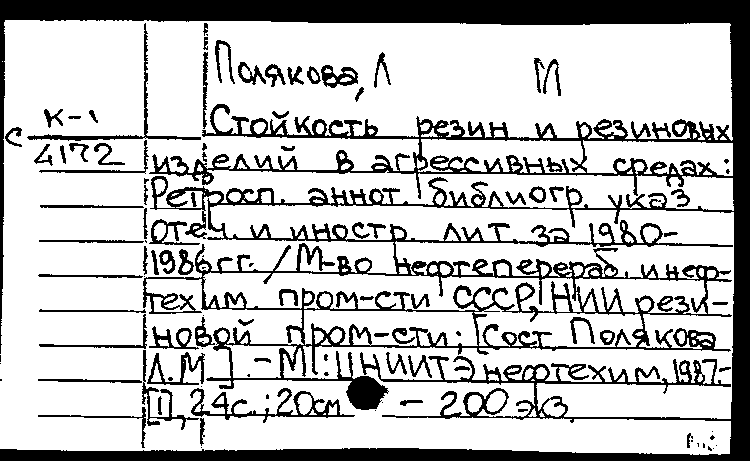 Полякова, Л М
К-1
Стойкость резин и резиновых
С 4172
изделий в агрессивных средах:
Ретросп. аннот. библиогр. указ.
отеч. и иностр. лит. за 1980-
1986гг. / М-во нефтеперераб. и неф-
техим. пром-сти СССР, НИИ рези-
новой пром-сти; [Сост. Полякова
Л.М.]. - М.: ЦНИИТЭнефтехим, 1987.-
[1], 24с.; 20см - 200 экз.